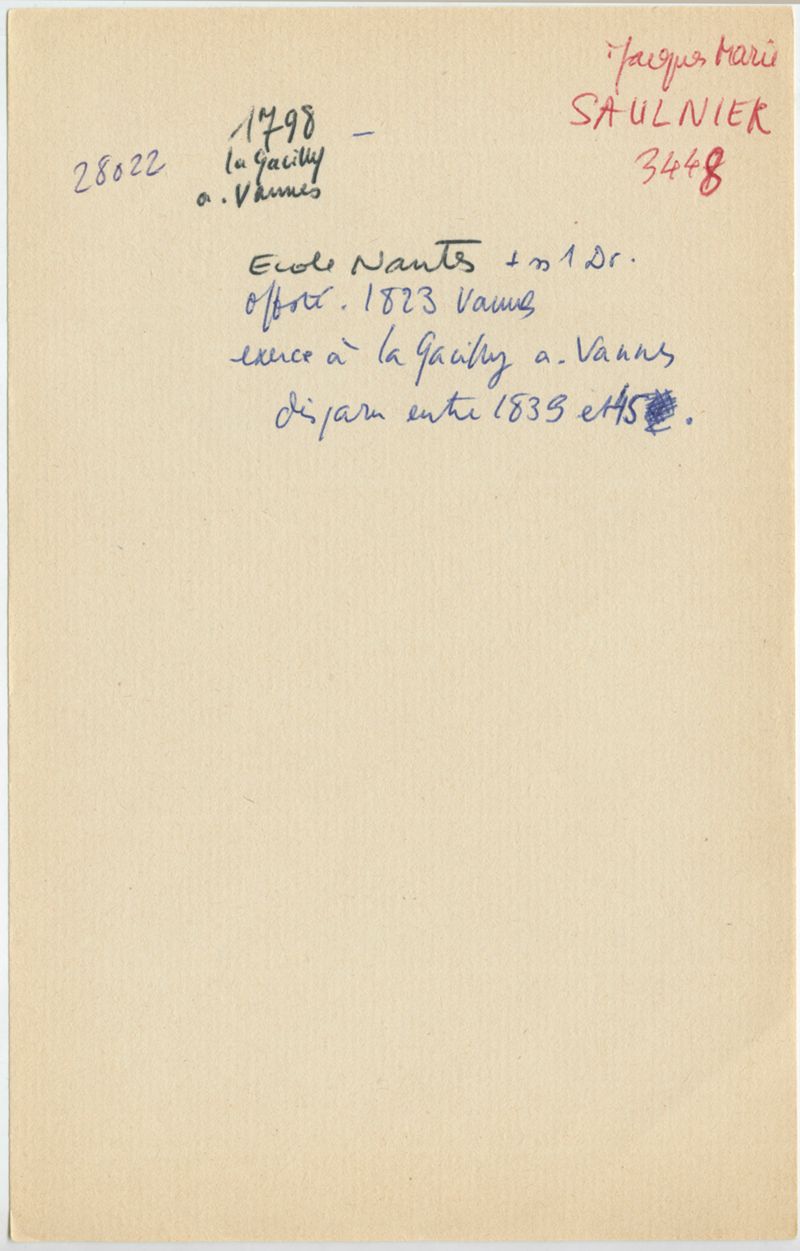 Jacques Marie
SAULNIER
3448
1798 –
28022
la Gacilly
a. Vannes
Ecole Nantes + ss 1 Dr.
off. 1823 Vannes
exerce à la Gacilly a. Vannes
disparu entre 1839 et 45 .